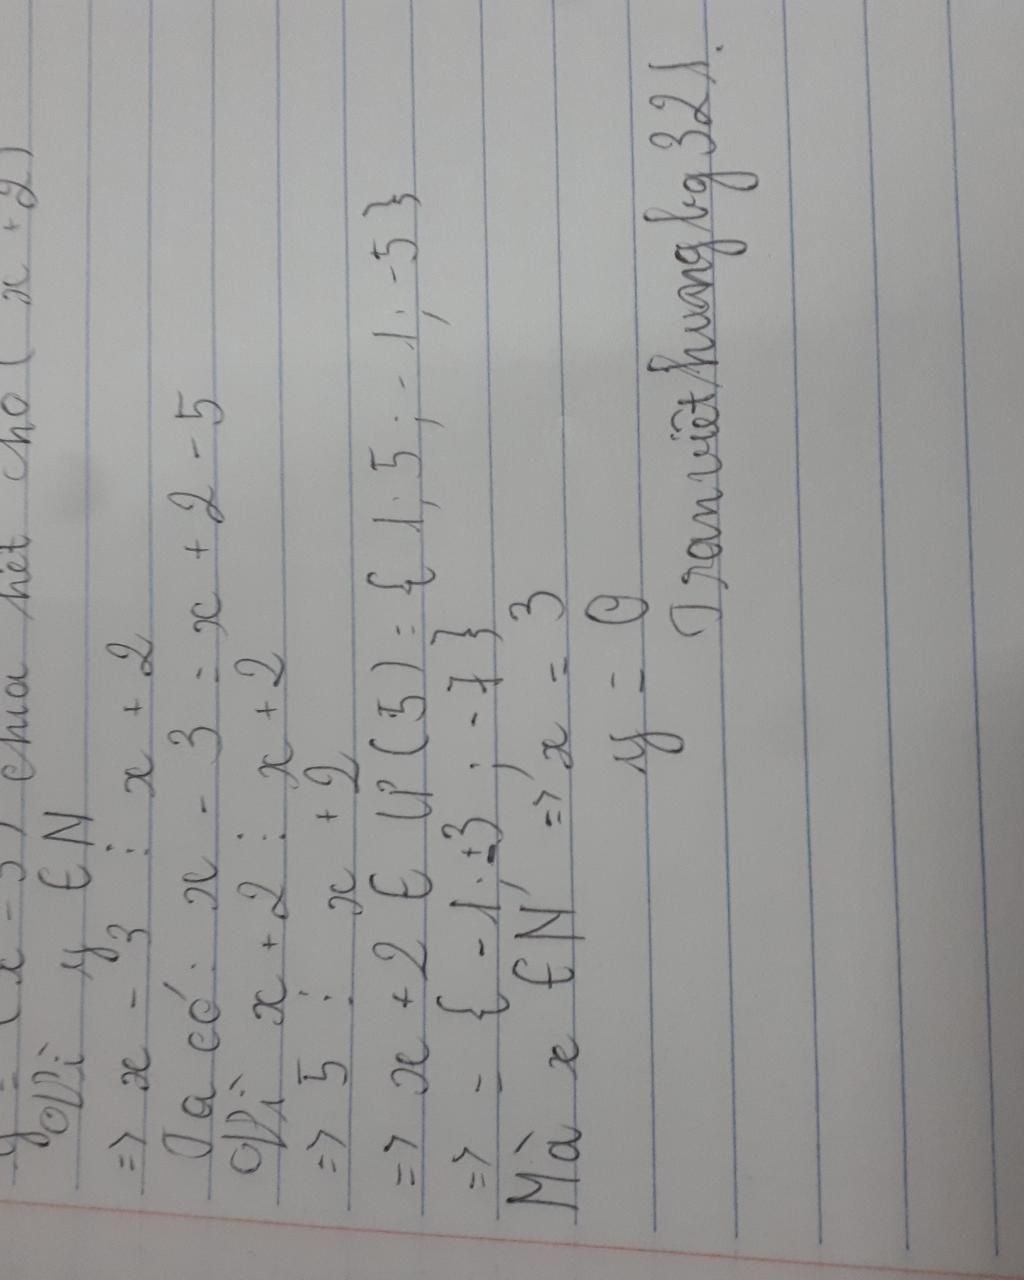 y = (x - 3) chia hết cho (x + 2)
Vì y ∈ N
=> x - 3 ⋮ x + 2
Ta có: x - 3 = x + 2 - 5
Vì x + 2 ⋮ x + 2
=> 5 ⋮ x + 2
=> x + 2 ∈ Ư(5) = { 1; 5; -1; -5 }
=> = { -1; +3; -7 }
Mà x ∈ N => x = 3
y = 0
Tranviethuangbg321.